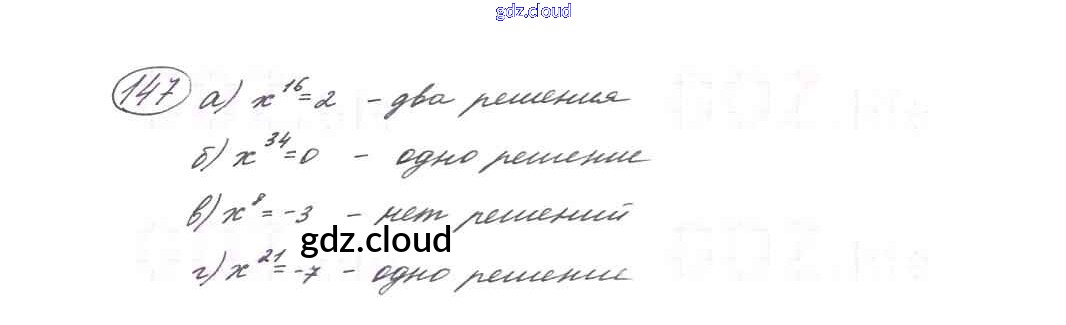 gdz.cloud
147 а) x^16 = 2 - два решения
б) x^34 = 0 - одно решение
в) x^8 = -3 - нет решений
gdz.cloud
г) x^21 = -7 - одно решение